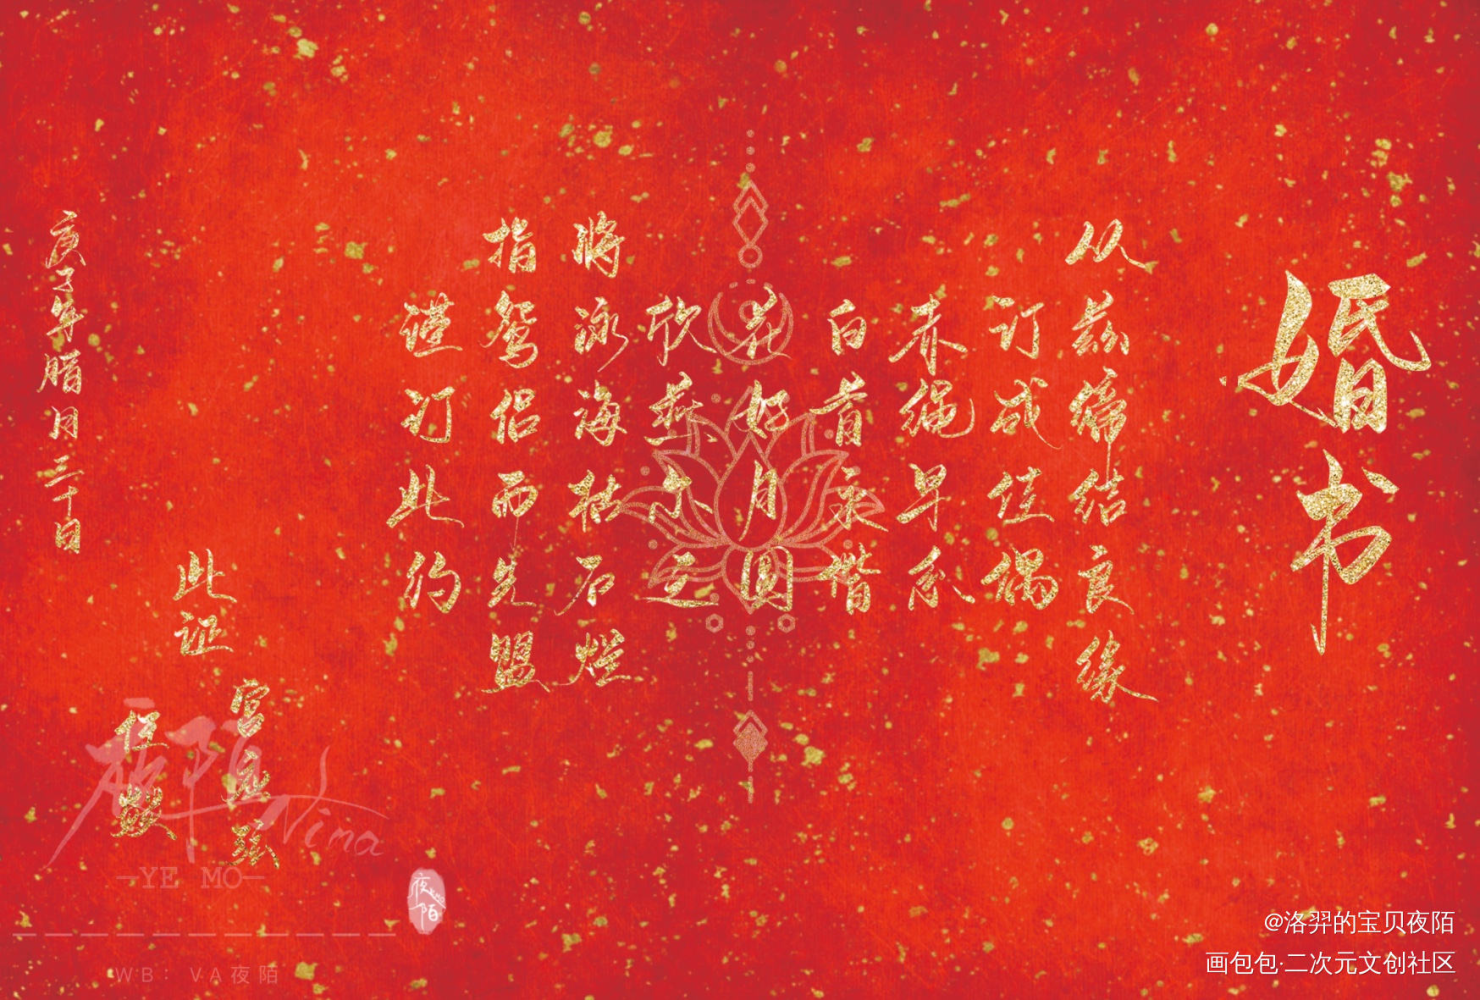 婚书
从兹缔结良缘
订成佳偶
赤绳早系
白首永偕
花好月圆
欣燕尔之
将泳海枯石烂
指鸳侣而先盟
谨订此约
此证
宫远
任
庚子年腊月三十日
夜陌
Nina
—YE MO—
WB：VA夜陌
夜陌
@洛羿的宝贝夜陌
画包包·二次元文创社区